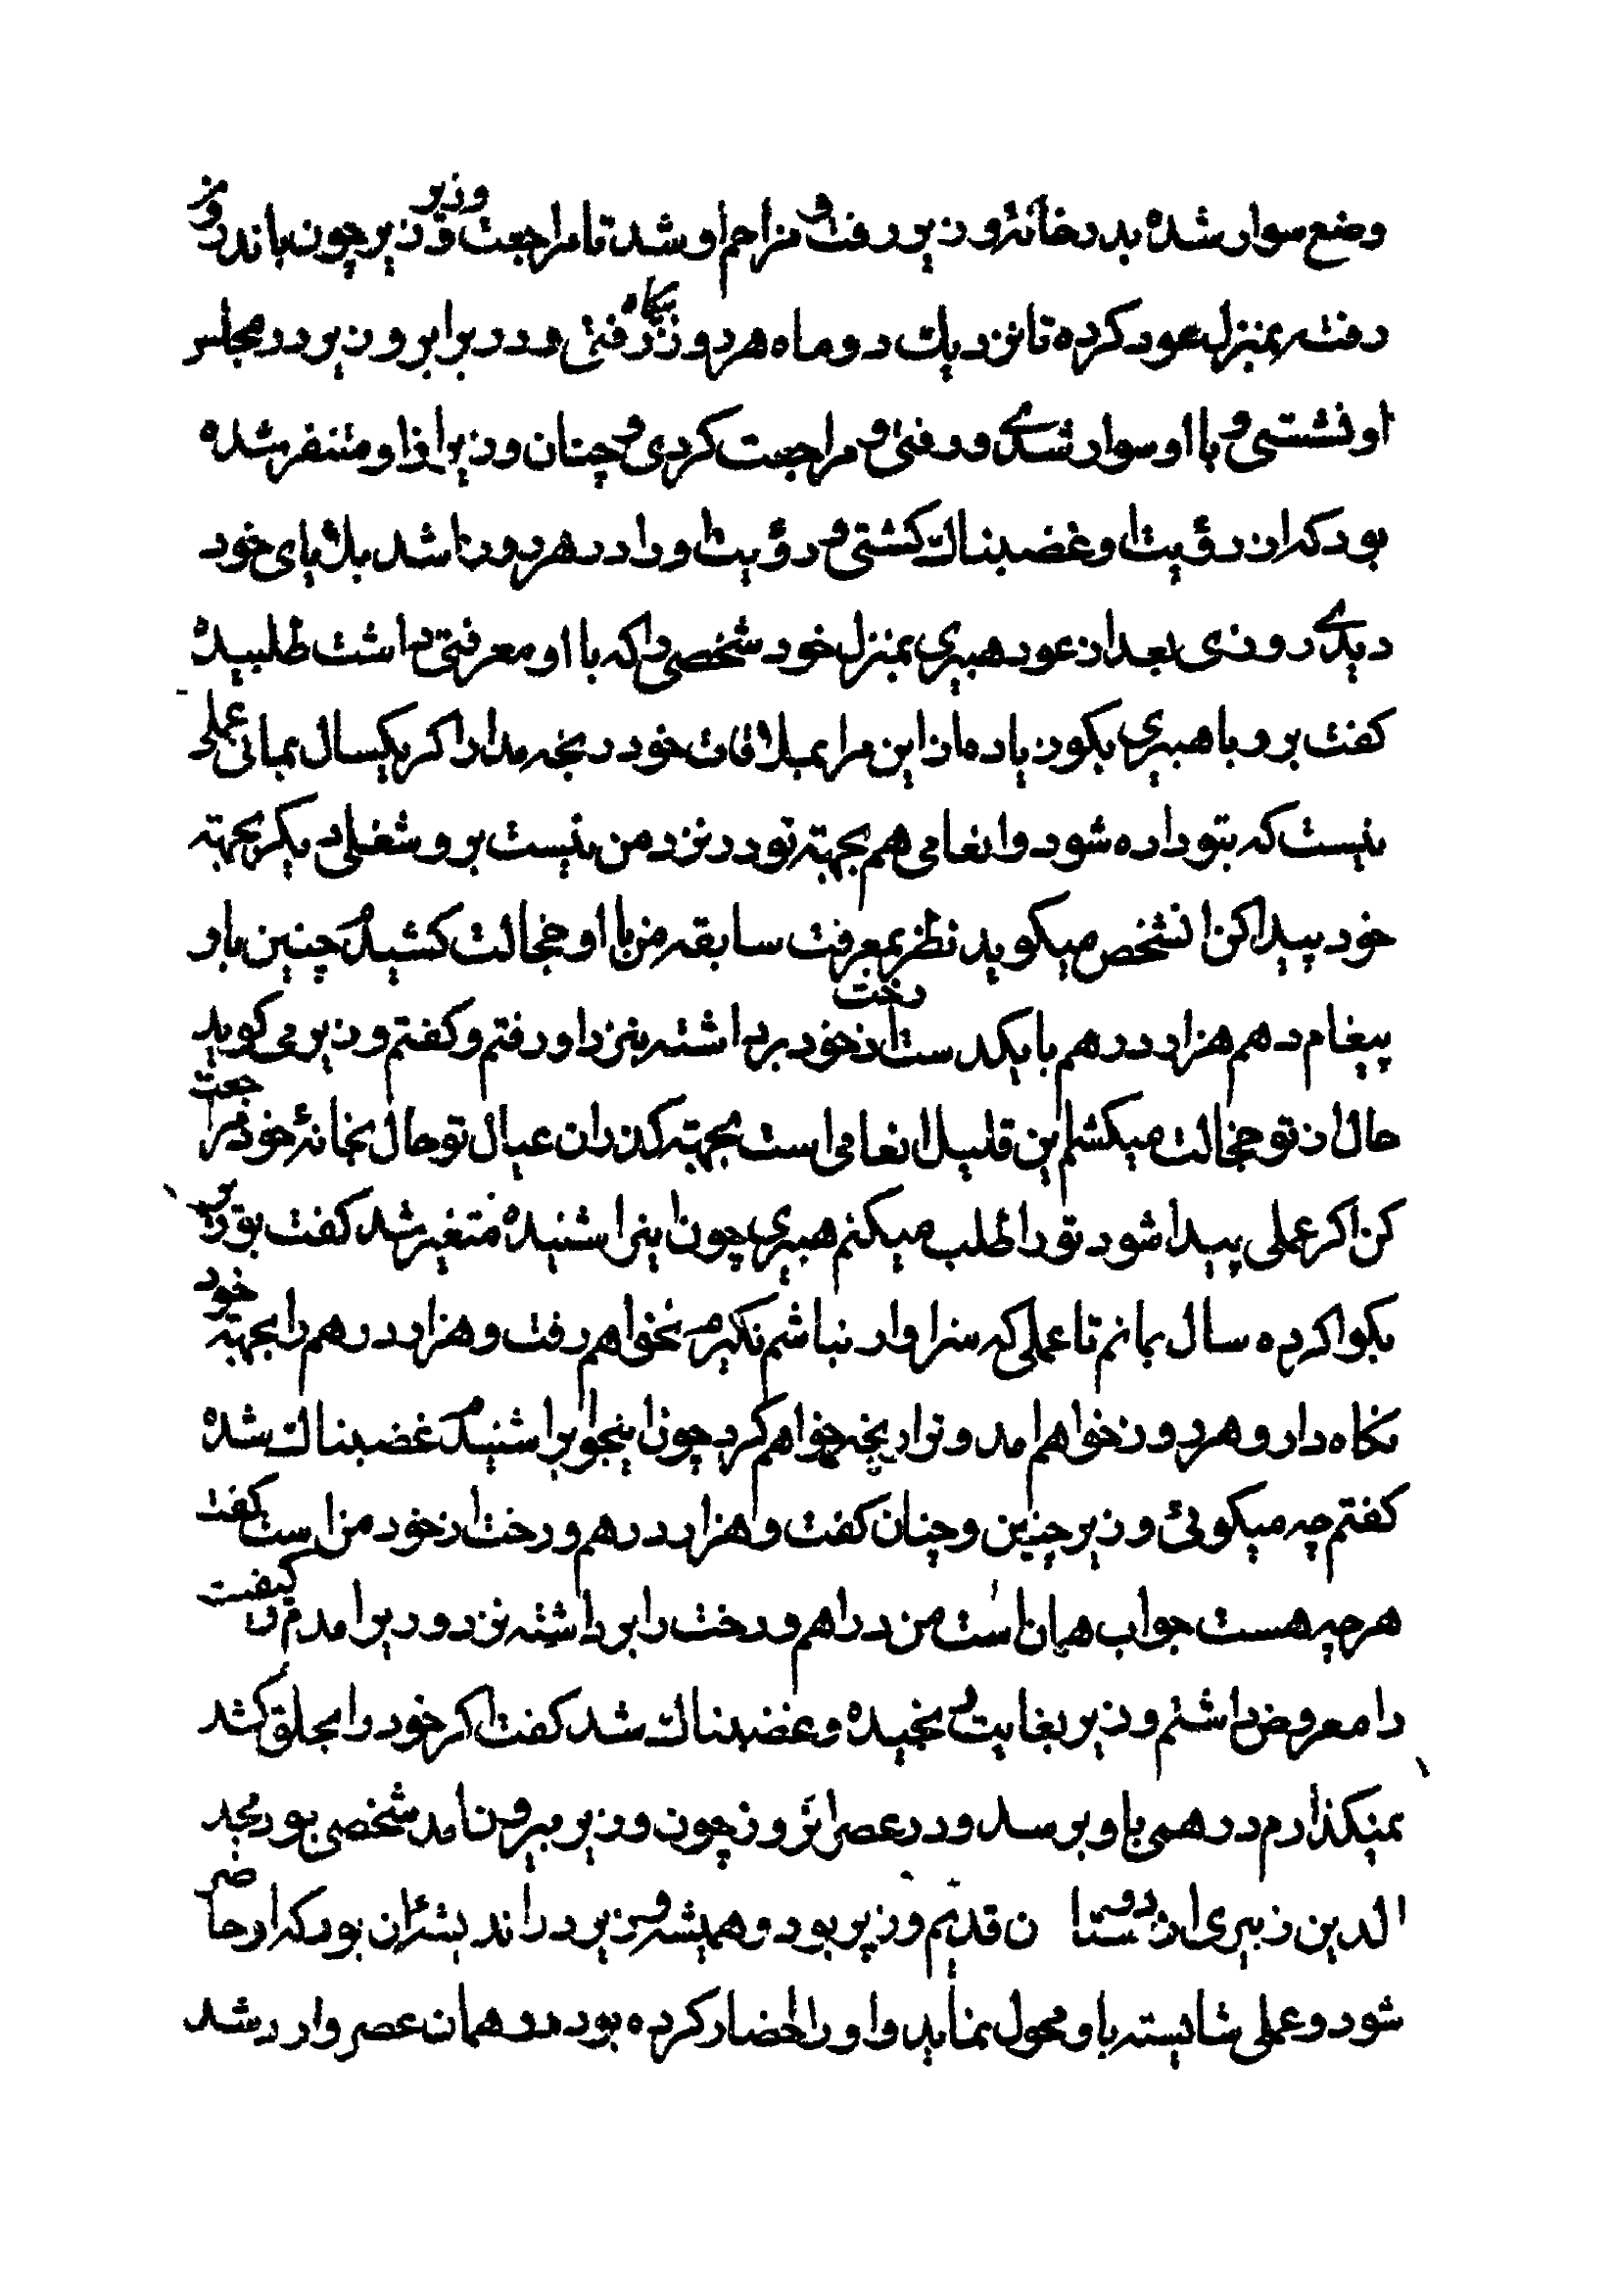 وضع سوار شده بدر خانهٔ وزیر رفت و مزاحم او شد تا مراجعت وزیر و وزیر چون باندرون
رفت بمنزل عود کرده تا نزدیک دو ماه هر روز پگاه نزد رفتی و در برابر وزیر در مجلس
او نشستی و با او سوار شدی و رفتی و مراجعت کردی و چنان وزیر از او متنفر شده
بود که از رؤیت او غضبناک گشتی و رؤیت او را در هر روز ناشد بلای پای خود
دیدی روزی بعد از عود هبیری بمنزل خود شخصی را که با او معرفتی داشت طلبیده
گفت برو با هبیری بگو زیاده از این مرا بملاقات خود رنجه مدار اگر یکسال بمانی عملی
نیست که بتو داده شود و انعامی هم بجهته تو در نزد من نیست برو شغلی دیگر بجهته
خود پیدا کن انشخص میگوید نظر بمعرفت سابقه من با او خجالت کشیدم چنین بار
پیغام دهم هزار درهم با یکدست رخت از خود برداشته بنزد او رفتم و گفتم وزیر می گوید
حال از تو خجالت میکشم این قلیل انعامی است بجهته گذران عیال تو حال بخانهٔ خود مراجعت
کن اگر عملی پیدا شود تو را طلب میکنم هبیری چون اینرا شنیده متغیر شد گفت بوزیر
بگو اگر ده سال بمانم تا عملی که سزاوار نباشم نگیرم نخواهم رفت و هزار درهم را بجهته خود
نگاه دار و هر روز خواهم امد و ترا رنجه خواهم کرد چون اینجوابرا شنیدم غضبناک شده
گفتم چه میگوئی وزیر چنین و چنان گفت و هزار درهم و رخت از خود من است گفت
هر چه هست جواب همان است من دراهم و رخت را برداشته نزد وزیر امدم و کیفیت
را معروض داشتم وزیر بغایت رنجیده و غضبناک شد گفت اگر خود را بحلق کشد
نمیگذارم درهمی باو برسد و در عصر انروز چون وزیر بیرون امد شخصی بود مجد
الدین زبیری از دوستان قدیم وزیر بود و همیشه وزیر در اندیشهٔ ان بود که او حاضر
شود و عملی شایسته باو محول نماید و او را احضار کرده بود در همان عصر وارد شد